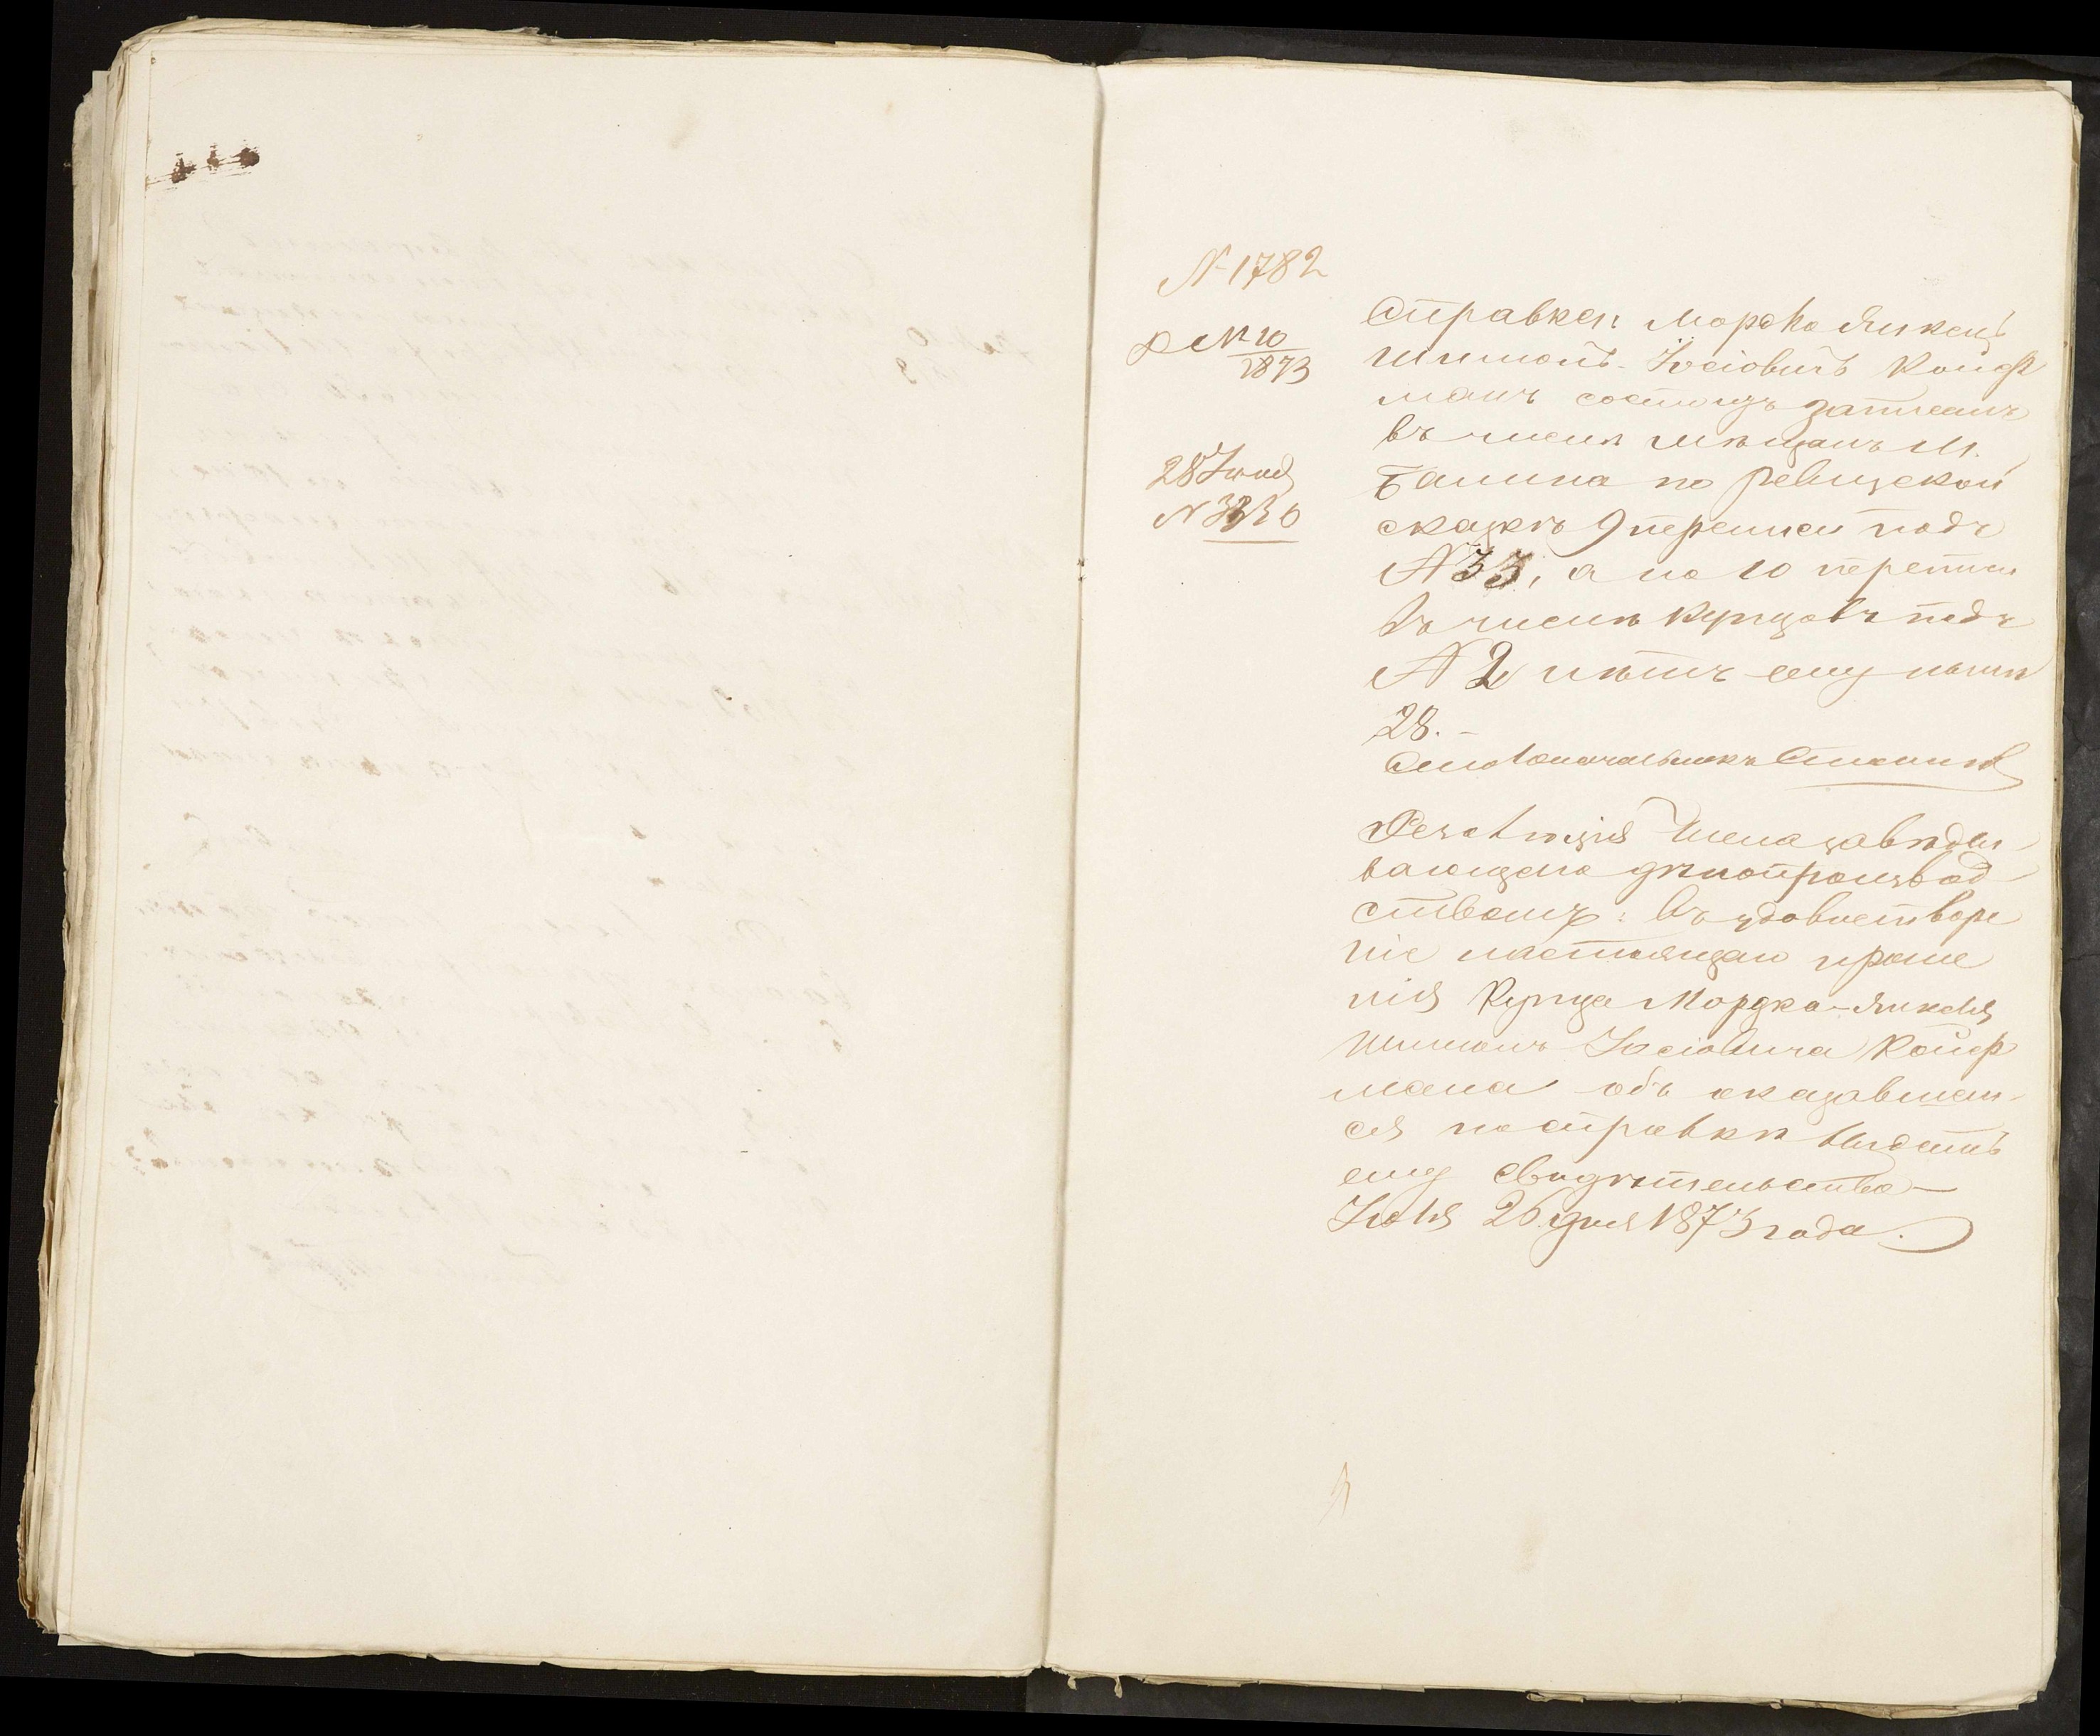 N 1782
Д № 10
1873
28 Іюля
N 3330
Справка: Мордко Янкель
Шимонъ Іосіовичъ Койфъ
манъ состоитъ записанъ
въ числѣ мѣщанъ М.
по ревизской
сказкѣ 9 переписи подъ
N 33, а по 10 переписи
въ числѣ купцовъ подъ
N 2 лѣтъ ему нынѣ
28.-
Столоначальникъ
Резолюція Члена завѣды
вающаго дѣлопроизвод
ствомъ: Въ удовлетворе
ніе настоящаго проше
нія Купца Мордка-Янкеля
Шимонъ Іосіовича Койф
мана объ оказавшем-
ся по справкѣ выдать
ему свидѣтельство-
Іюля 26 дня 1873 года.